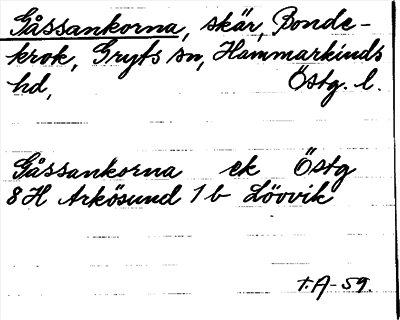 Gåssankorna, skär, Bonde-
krok, Gryts sn, Hammarkinds
hd, Östg. l.
Gåssankorna ek Östg
8H Arkösund 1b Lövvik
t.A-59.